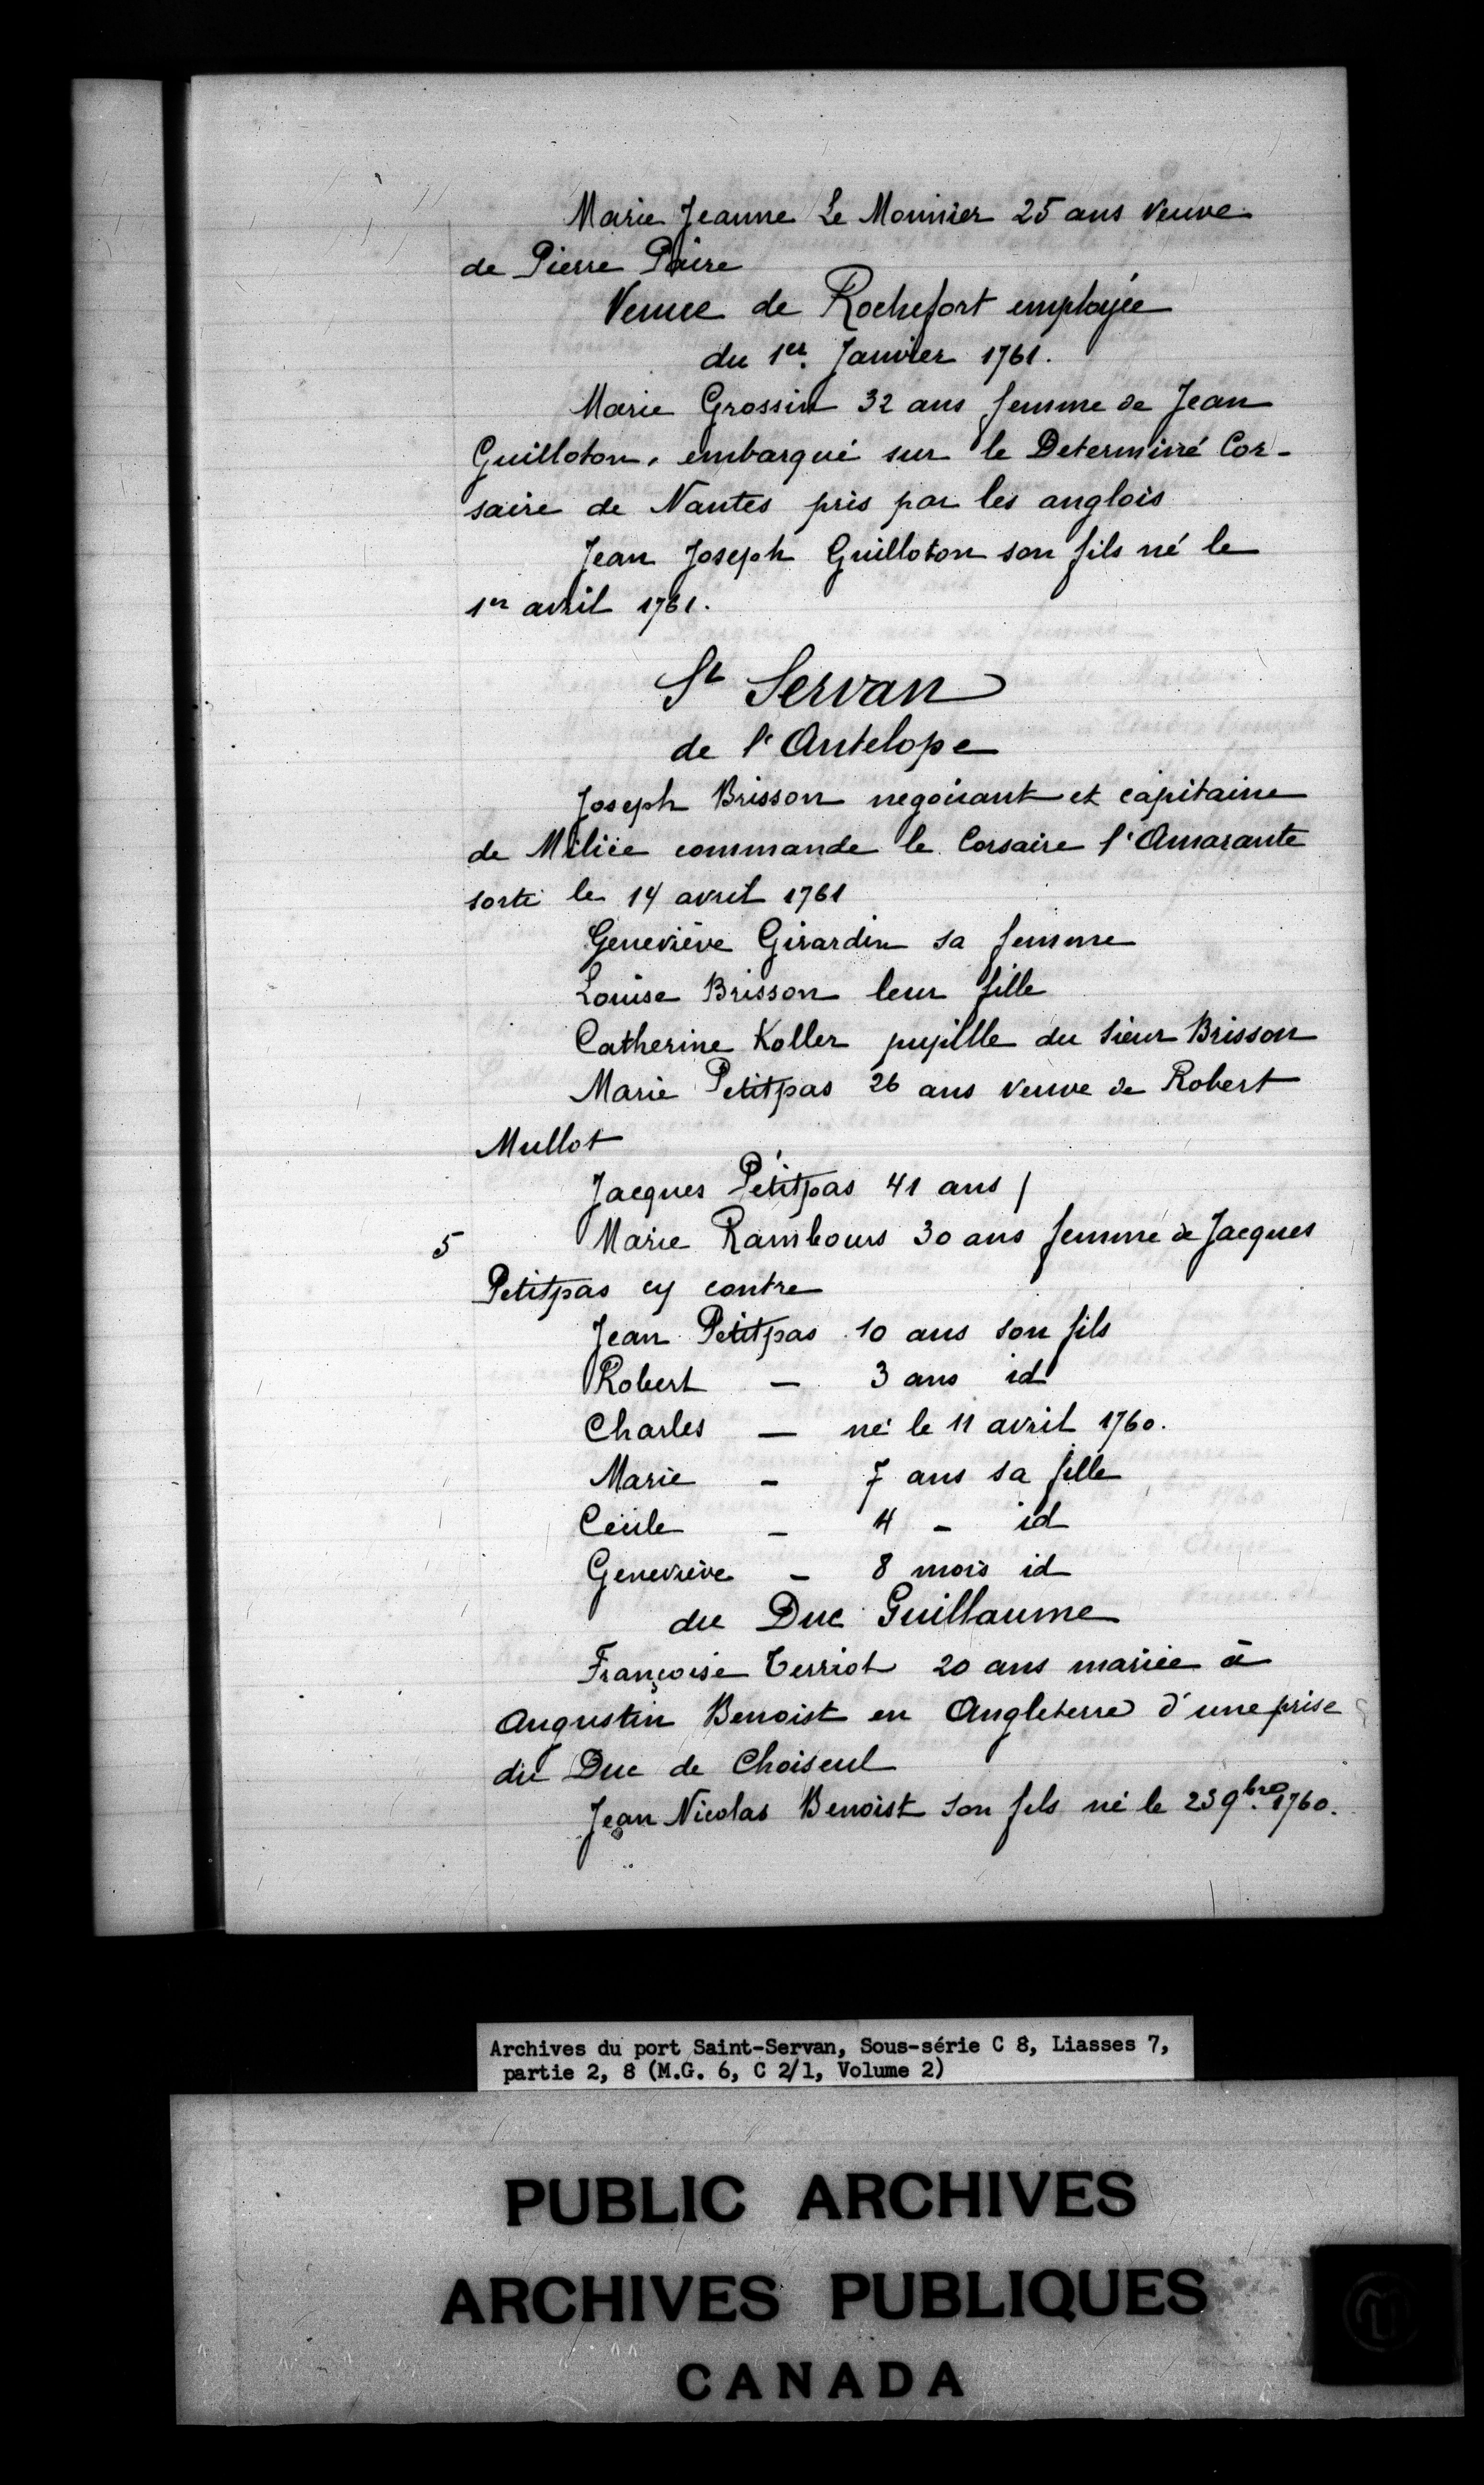 Marie Jeanne Le Monnier 25 ans veuve
de Pierre Paire
Venue de Rochefort employée
du 1er. Janvier 1761.
Marie Grossin 32 ans femme de Jean
Guilloton, embarqué sur le Determiné Cor-
saire de Nantes pris par les anglois
Jean Joseph Guilloton son fils né le
1er avril 1761.
St Servan
de l'Antelope
Joseph Brisson negociant et capitaine
de Milice commande le Corsaire l'Amarante
sorti le 14 avril 1761
Geneviève Girardin sa femme
Louise Brisson leur fille
Catherine Koller pupille du sieur Brisson
Marie Petitpas 26 ans veuve de Robert
Mullot
Jacques Pétitpas 41 ans /
5 Marie Rambours 30 ans femme de Jacques
Petitpas cy contre
Jean Petitpas 10 ans son fils
Robert — 3 ans id
Charles — né le 11 avril 1760.
Marie - 7 ans sa fille
Cécile - 4 - id
Geneviève - 8 mois id
du Duc Guillaume
Françoise Terriot 20 ans mariée à
Augustin Benoist en Angleterre d'une prise
du Duc de Choiseul
Jean Nicolas Benoist son fils né le 23 9bre. 1760.
Archives du port Saint-Servan, Sous-série C 8, Liasses 7,
partie 2, 8 (M.G. 6, C 2/1, Volume 2)
PUBLIC ARCHIVES
ARCHIVES PUBLIQUES
CANADA